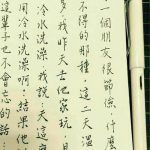 一個朋友很節儉 什麼
不得的那種 這二天溫
多我昨天去他家玩 
冷水洗澡 我說:天這麼
用冷水洗澡啊…結果他
這輩子也不會忘的話: